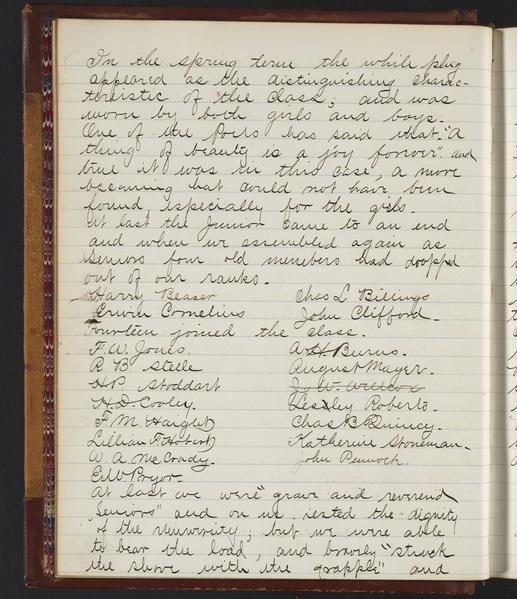 In the spring term the white plug
appeared as the distinguishing charac-
teristic of the class; and was
worn by both girls and boys.
One of the Poets has said that "A
thing of beauty is a joy forever" and
true it was in this case, a more
becoming hat could not have been
found, especially for the girls.
At last the Junior came to an end
and when we assembled again as
Seniors four old members had dropped
out of our ranks.
Harry Beaser Chas L Billings
Erwin Cornelius John Clifford.
Fourteen joined the class.
F. W. Jones. A. H. Burns.
R B Steele August Mayer.
H P. Stoddart J. W. Willcox
H. D. Cooley. Lesley Roberts.
F. M. Haight Chas B Quincy.
Lillian F. Hobart Katherine Stoneman.
W. A. McCrady. John Pennock.
E. W. Pryor.
At last we were "grave and reverend
Seniors" and on us rested the dignity
of the University; but we were able
to bear the load, and bravely "struck
the shore with the grapple" and